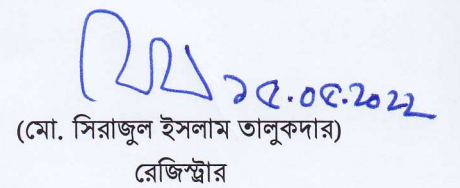 ১৫.০৫.2022
(মো. সিরাজুল ইসলাম তালুকদার)
রেজিস্ট্রার